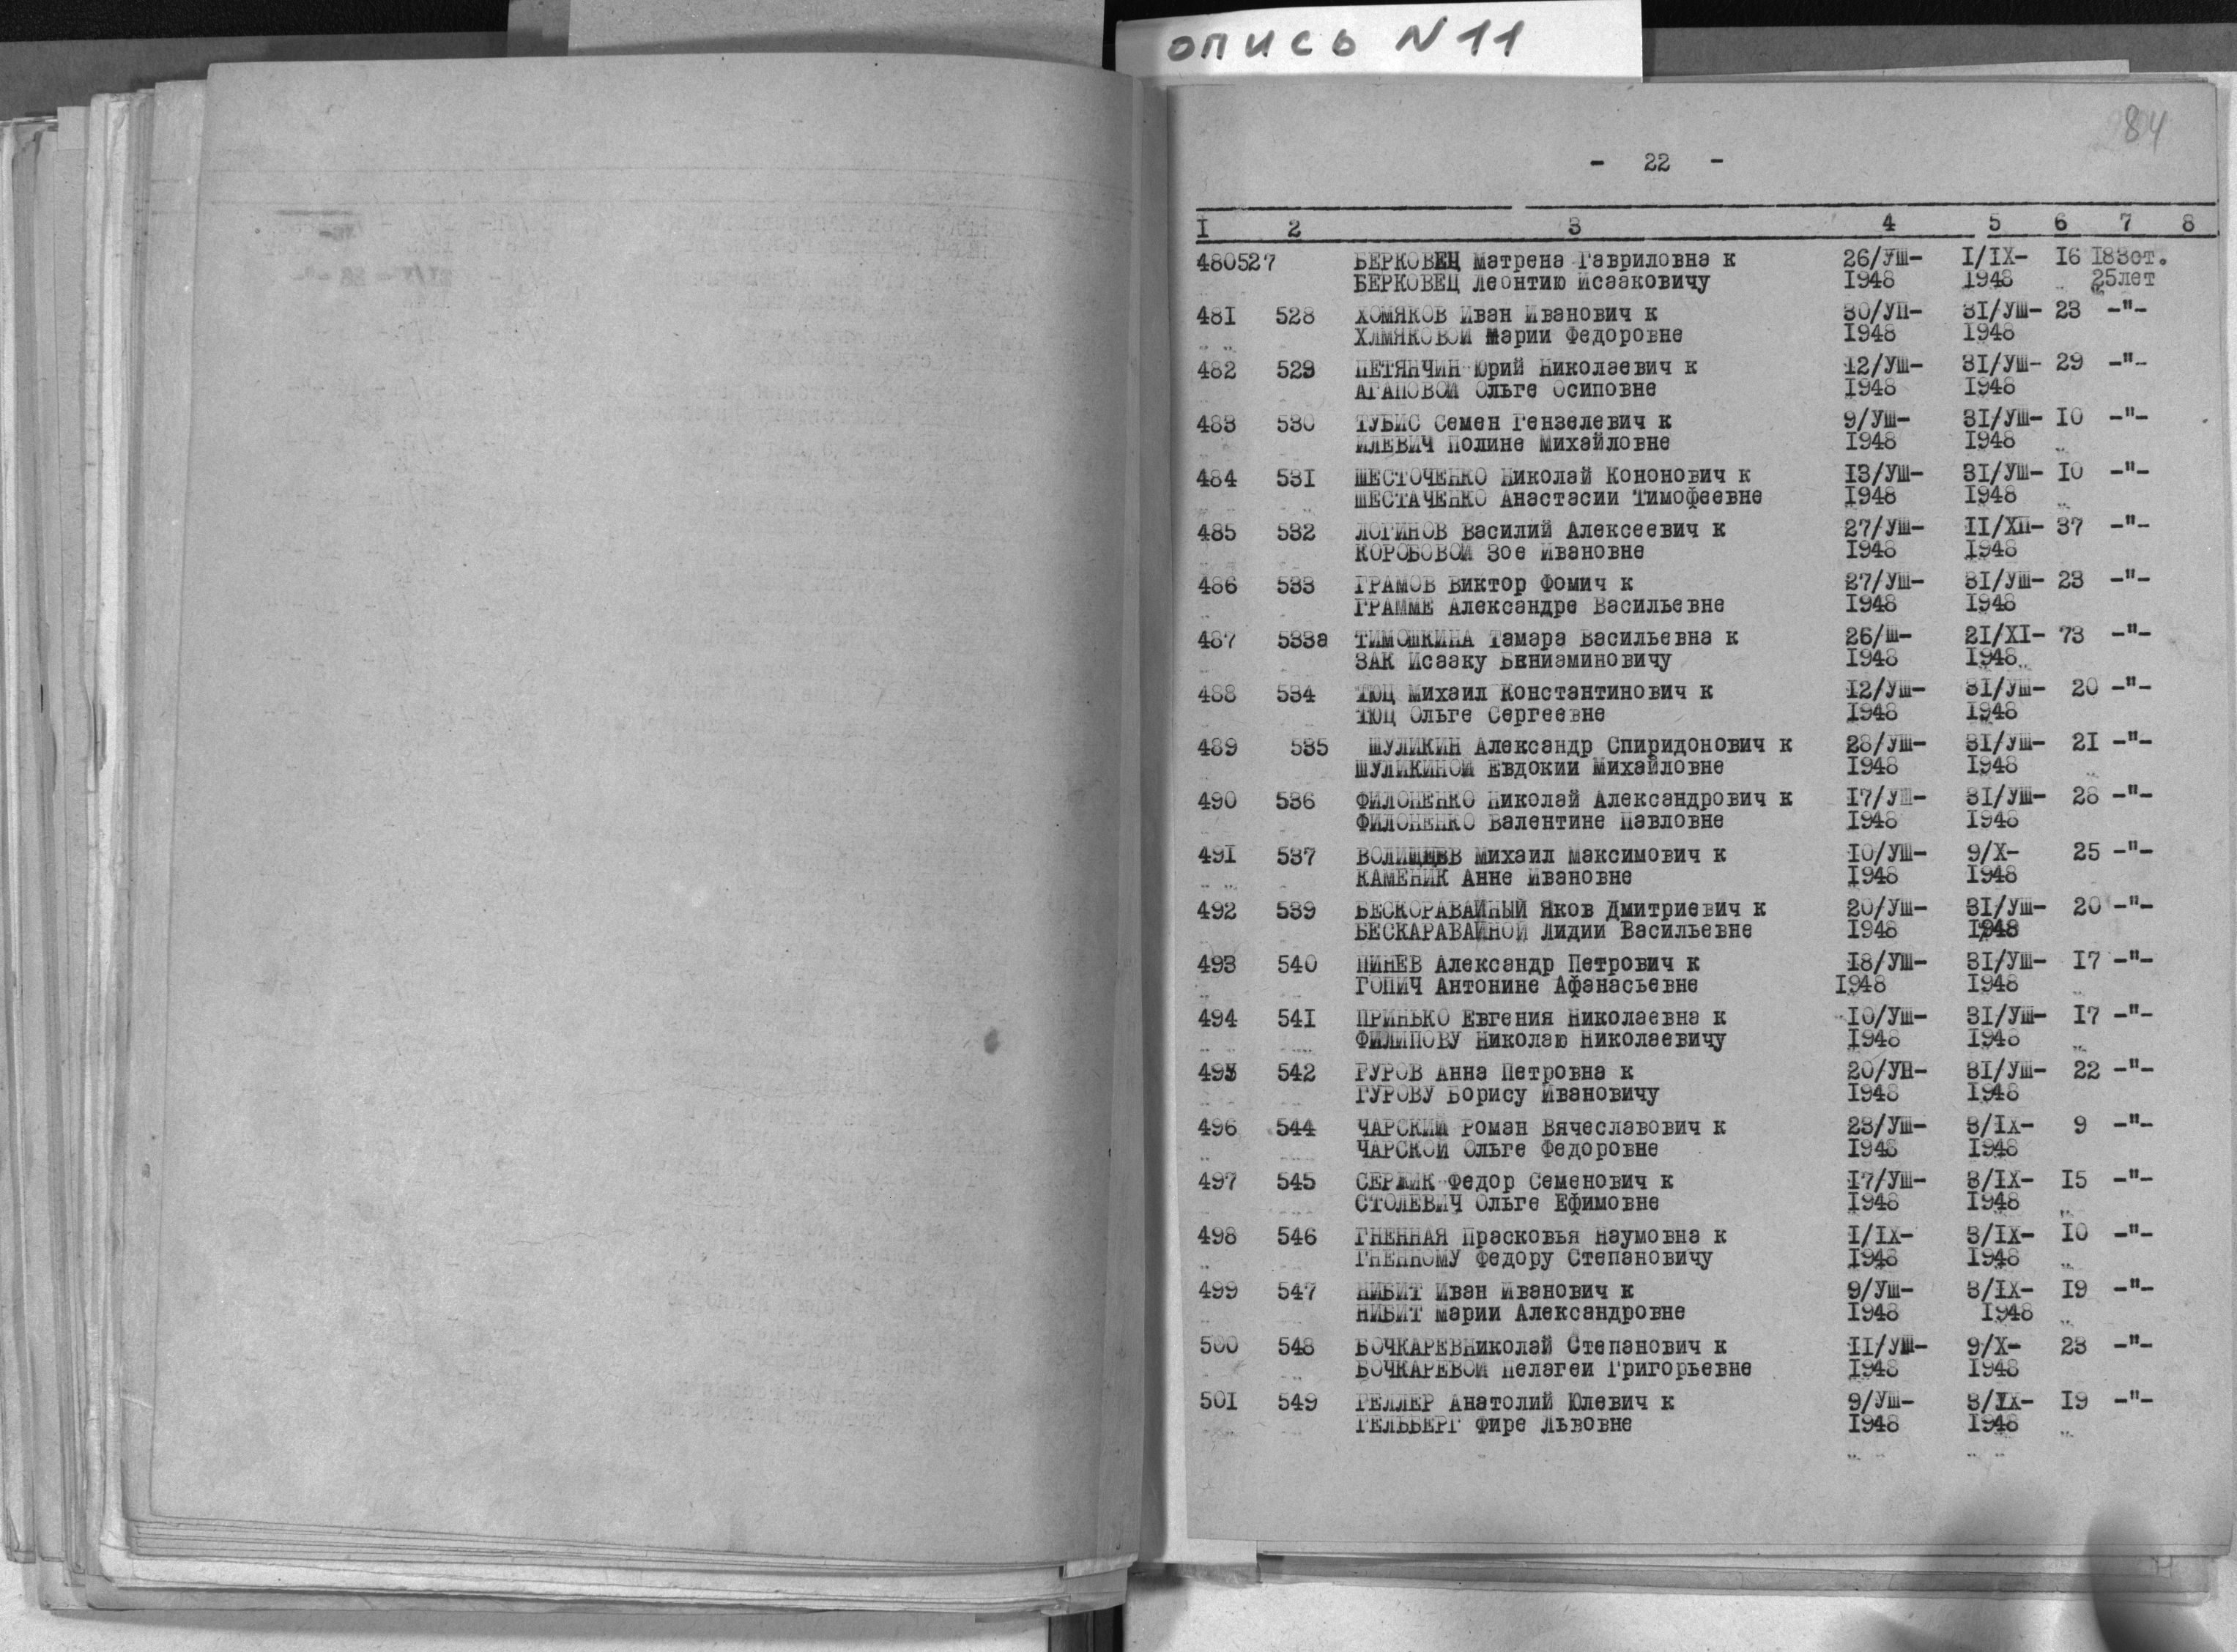 опись N 11
84
- 22 -
I 2 3 4 5 6 7 8
480527 БЕРКОВЕЦ Матрена Гавриловна к 26/УШ- I/IX- I6 I83ст.
БЕРКОВЕЦ Леонтию Исааковичу I948 I948 25лет
48I 528 ХОМЯКОВ Иван Иванович к 30/УП- 3I/УШ- 23 -"-
ХЛМЯКОВОЙ Марии Федоровне I948 I948
482 529 ПЕТЯНЧИН Юрий Николаевич к I2/УШ- 3I/УШ- 29 -"-
АГАПОВОЙ Ольге Осиповне I948 I948
483 530 ТУБИС Семен Гензелевич к 9/УШ- 3I/УШ- I0 -"-
ИЛЕВИЧ Полине Михайловне I948 I948
484 53I ШЕСТОЧЕНКО Николай Кононович к I3/УШ- 3I/УШ- I0 -"-
ШЕСТАЧЕНКО Анастасии Тимофеевне I948 I948
485 532 ЛОГИНОВ Василий Алексеевич к 27/УШ- II/ХП- 37 -"-
КОРОБОВОЙ Зое Ивановне I948 I948
486 533 ГРАМОВ Виктор Фомич к 27/УШ- 3I/УШ- 23 -"-
ГРАММЕ Александре Васильевне I948 I948
487 533а ТИМОШКИНА Тамара Васильевна к 26/Ш- 2I/XI- 73 -"-
ЗАК Исааку Вениаминовичу I948 I948
488 534 ТЮЦ Михаил Константинович к I2/УШ- 3I/УШ- 20 -"-
ТЮЦ Ольге Сергеевне I948 I948
489 535 ШУЛИКИН Александр Спиридонович к 28/УШ- 3I/УШ- 2I -"-
ШУЛИКИНОЙ Евдокии Михайловне I948 I948
490 536 ФИЛОНЕНКО Николай Александрович к I7/УШ- 3I/УШ- 28 -"-
ФИЛОНЕНКО Валентине Павловне I948 I948
49I 537 Михаил Максимович к I0/УШ- 9/X- 25 -"-
КАМЕНИК Анне Ивановне I948 I948
492 539 БЕСКОРАВАЙНЫЙ Яков Дмитриевич к 20/УШ- 3I/УШ- 20 -"-
БЕСКАРАВАЙНОЙ Лидии Васильевне I948 I948
493 540 ПИНЕВ Александр Петрович к I8/УШ- 3I/УШ- I7 -"-
ГОПИЧ Антонине Афанасьевне I948 I948
494 54I ПРИНЬКО Евгения Николаевна к I0/УШ- 3I/УШ- I7 -"-
ФИЛИПОВУ Николаю Николаевичу I948 I948
495 542 ГУРОВ Анна Петровна к 20/УП- 3I/УШ- 22 -"-
ГУРОВУ Борису Ивановичу I948 I948
496 544 ЧАРСКИЙ Роман Вячеславович к 23/УШ- 3/IX- 9 -"-
ЧАРСКОЙ Ольге Федоровне I948 I948
497 545 СЕРЖИК Федор Семенович к I7/УШ- 3/IX- I5 -"-
СТОЛЕВИЧ Ольге Ефимовне I948 I948
498 546 ГНЕННАЯ Прасковья Наумовна к I/IX- 3/IX- I0 -"-
ГНЕННОМУ Федору Степановичу I948 I948
499 547 НИБИТ Иван Иванович к 9/УШ- 3/IX- I9 -"-
НИБИТ Марии Александровне I948 I948
500 548 БОЧКАРЕВНиколай Степанович к II/УШ- 9/X- 23 -"-
БОЧКАРЕВОЙ Пелагеи Григорьевне I948 I948
50I 549 ГЕЛЛЕР Анатолий Юлевич к 9/УШ- 3/IX- I9 -"-
ГЕЛЬБЕРГ Фире Львовне I948 I948